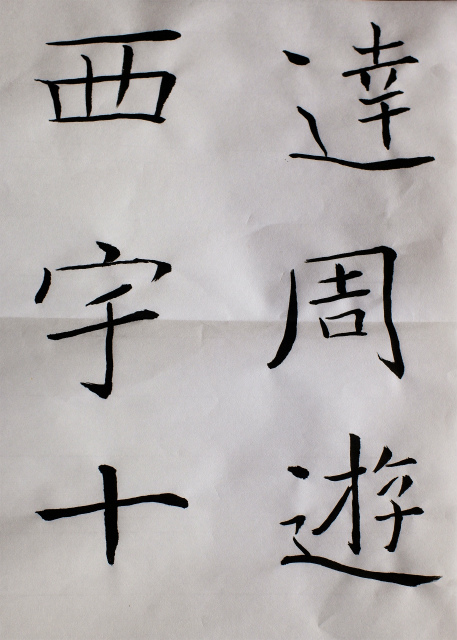 逹周遊
西字十